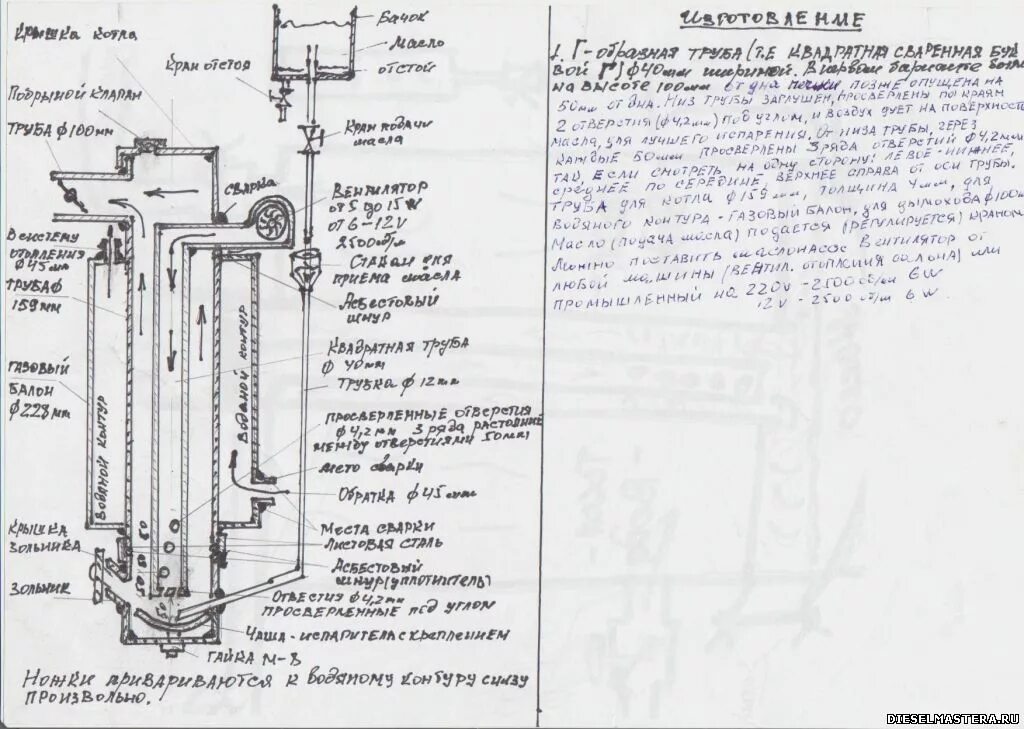 Крышка котла
Подрывной клапан
Труба ф 100мм
В систему
отопления
ф 45мм
Труба ф
159мм
Газовый
балон
ф 228мм
Водяной контур
Крышка
зольника
Зольник
Бачок
Масло
отстой
Кран отстоя
Кран подачи
масла
сварка
Вентилятор
от 5 до 15W
от 6-12V
2500об/м
Стакан для
приема масла
Асбестовый
шнур
Водяной контур
Квадратная труба
ф 40мм
Трубка ф 12мм
Просверленные отверстия
ф4,2мм 3 ряда растояние
между отверстиями 50мм
Место сварки
Обратка ф 45мм
Места сварки
Листовая сталь
Асбестовый
шнур (уплотнитель)
Отвестия ф 4,2мм
просверленные под углом
Чаша-испаритель с креплением
Гайка М-8
50
50
50
50
Ножки привариваются к водяному контуру снизу
произвольно.
Изготовление
1. Г-образная труба (т.е квадратная сваренная бук
вой Г) ф 40мм шириной. В первом варианте была
на высоте 100мм от дна позже опущена на
50мм от дна. Низ трубы заглушен, просверлены по краям
2 отверстия (ф4,2мм) под углом, и воздух дует на поверхность
масла, для лучшего испарения. От низа трубы, через
каждые 50мм просверлены 3 ряда отверстий ф 4,2мм
так, если смотреть на одну сторону: левое-нижнее,
среднее по середине, верхнее справа от оси трубы.
Труба для котла ф 159мм, толщина 4мм, для
водяного контура - газовый балон, для дымохода ф 100мм
Масло (подача масла) подается (регулируется) краном
Можно поставить маслонасос Вентилятор от
любой машины (вентил. отопления салона) или
промышленный на 220V - 2500 об/м 6W
12V - 2500 об/м 6W
DIESELMASTERA.RU